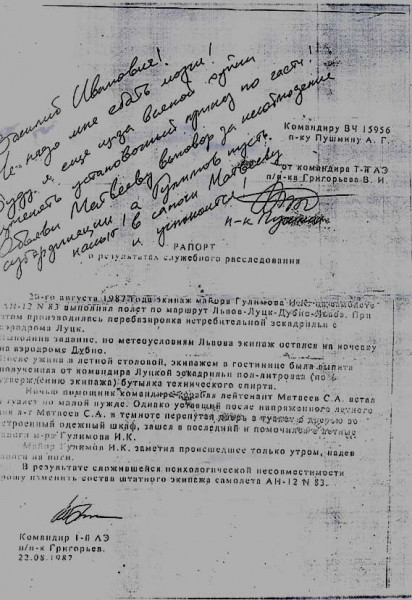 Василий Иванович!
Не надо мне
я, еще
менять установочный приказ по части!
Объяви Матвееву выговор за несоблюдение
субординации, а Гулимов пусть
в сапоги Матвееву
и успокоится!
п-к Пушмин
Командиру ВЧ 15956
п-ку Пушмину А. Г.
от командира 1-й АЭ
п/п-ка Григорьева В. И.
РАПОРТ
о результатах служебного расследования
20-го августа 1987 года экипаж майора Гулимова И.К. на самолете
АН-12 N 83 выполнял полет по маршруту Львов-Луцк-Дубно-Львов. При
этом производилась перебазировка истребительной эскадрильи с
аэродрома Луцк.
Выполнив задание, по метеоусловиям Львова экипаж остался на ночевку
на аэродроме Дубно.
После ужина в летной столовой, экипажем в гостинице была выпита
полученная от командира Луцкой эскадрильи пол-литровая (по
утверждению экипажа) бутылка технического спирта.
Ночью помощник командира корабля лейтенант Матвеев С.А. встал
в туалет по малой нужде. Однако уставший после напряженного летного
дня л-т Матвеев С.А. в темноте перепутал дверь в туалет с дверью во
встроенный одежный шкаф, зашел в последний и помочился в летные
сапоги м-ра Гулимова И.К.
Майор Гулимов И.К. заметил происшедшее только утром, надев
сапоги на ноги.
В результате сложившейся психологической несовместимости
прошу изменить состав штатного экипажа самолета АН-12 N 83.
Командир 1-й АЭ
п/п-к Григорьев.
22.08.1987